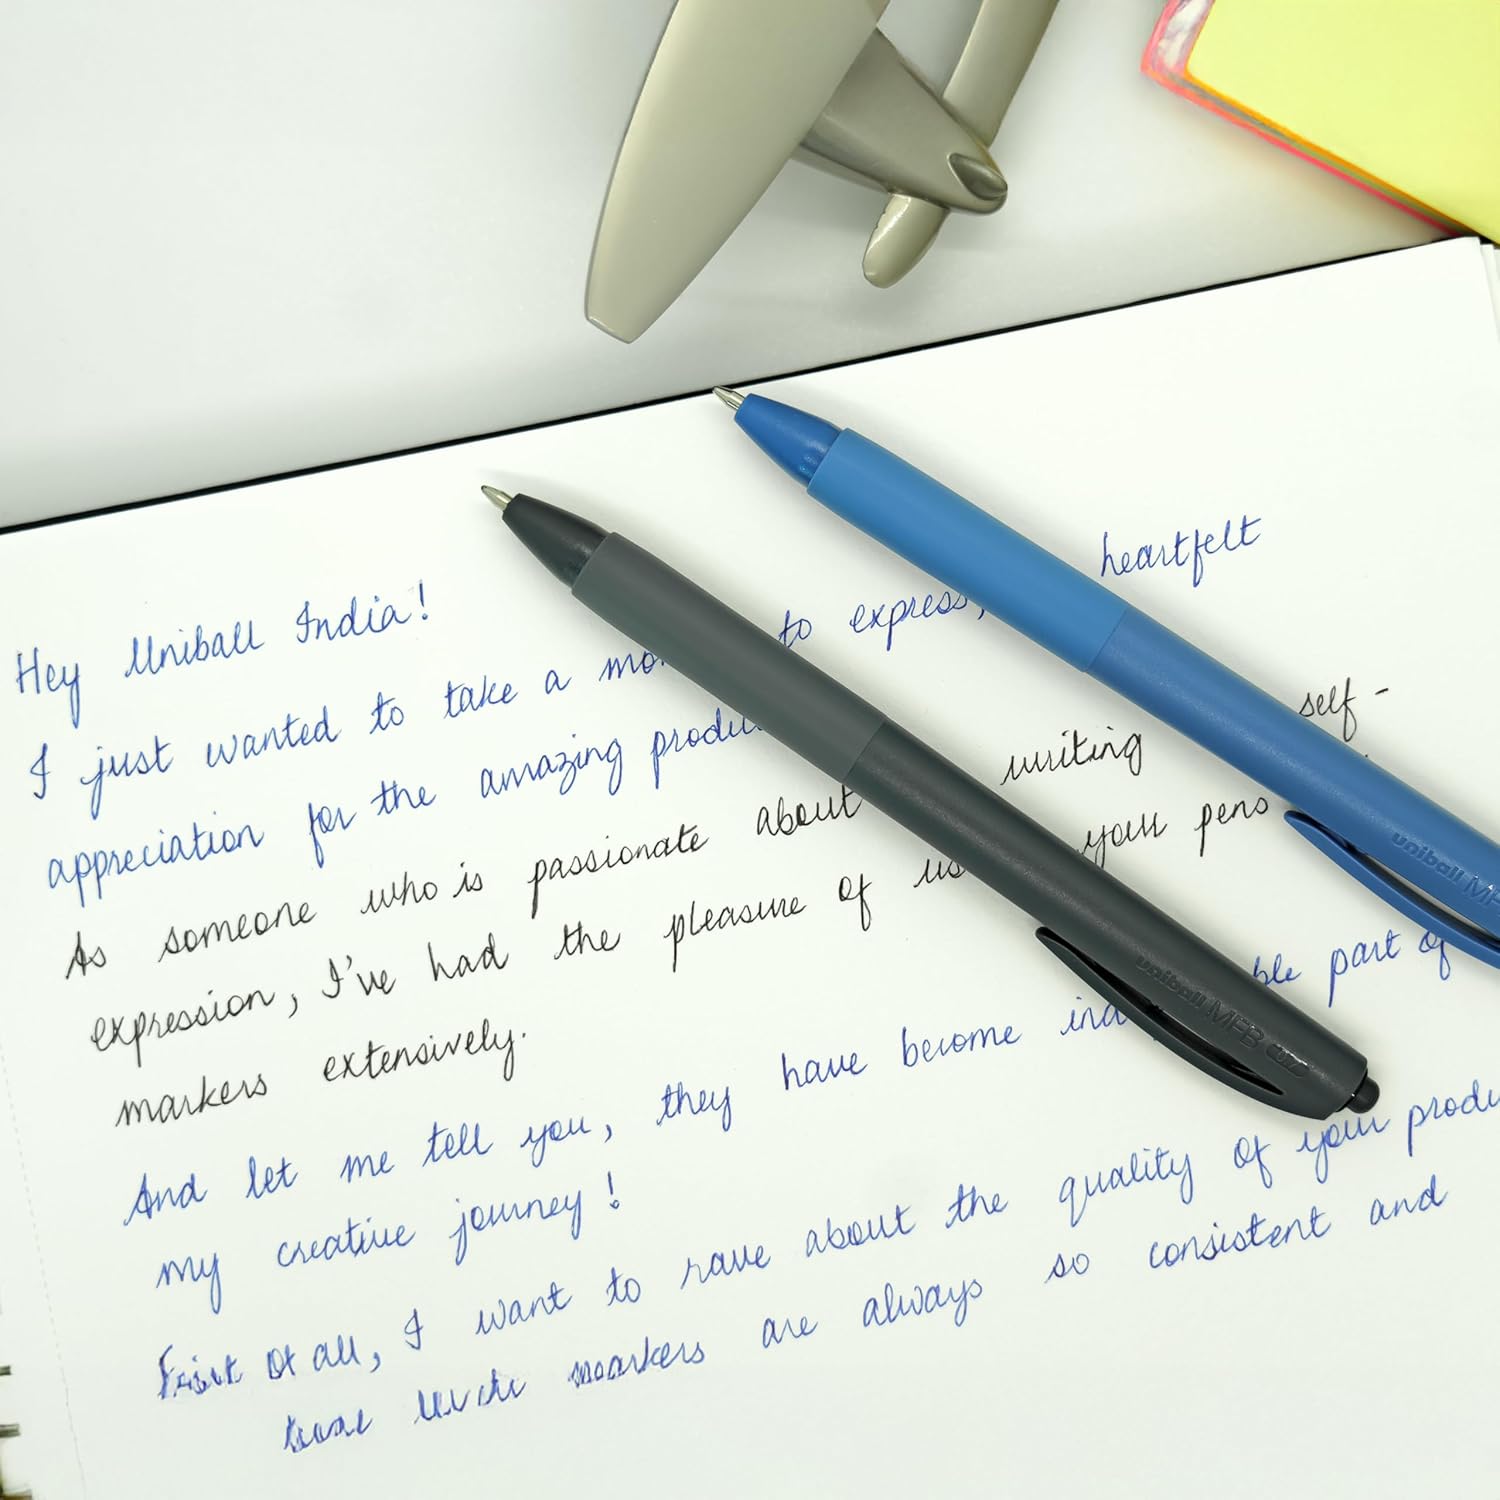 Hey Uniball India!
I just wanted to take a mo to express, heartfelt
appreciation for the amazing produ
As someone who is passionate about writing self-
expression, I've had the pleasure of us your pens
markers extensively.
And let me tell you, they have become ind ble part of
my creative journey!
First of all, I want to rave about the quality of your produ
markers are always so consistent and
uniball MFB
uniball MF